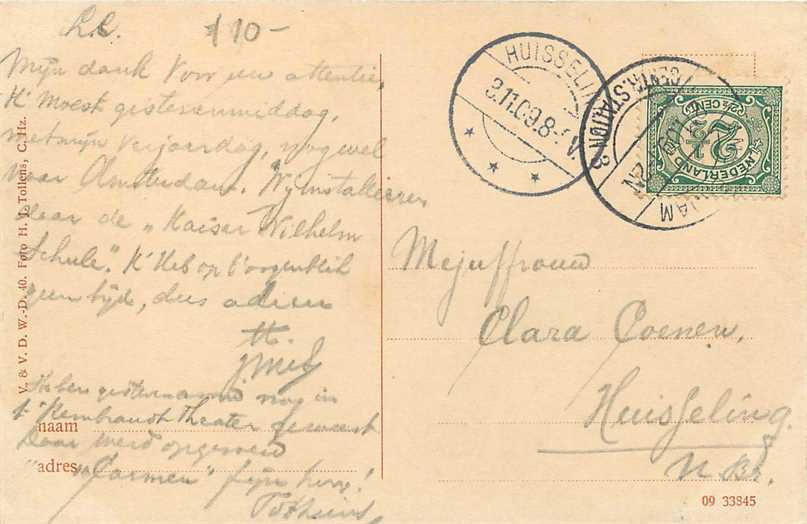 L.C. f 10-
Mijn dank voor uw attentie,
k' Moest gisterenmiddag,
met mijn verjaardag, nog wel
naar Amsterdam. Wij installeeren
daar de „Kaiser Wilhelm
Schule". k' Heb op 't oogenblik
geen tijd, dus adieu
tt.
Ik ben gisteravond nog in
't Rembrandt Theater geweest
Daar werd opgevoerd
„Carmen" fijn hoor!
naam
adres
V. & V. D. W.-D. 40. Foto H. J. Tollens, C.Hz.
HUISSELING
3.11.09.8-
CENTR. STATION
NEDERLAND
2½ CENT
Mejuffrouw
Clara Coenen,
Huisseling.
N. Br.
09 33845